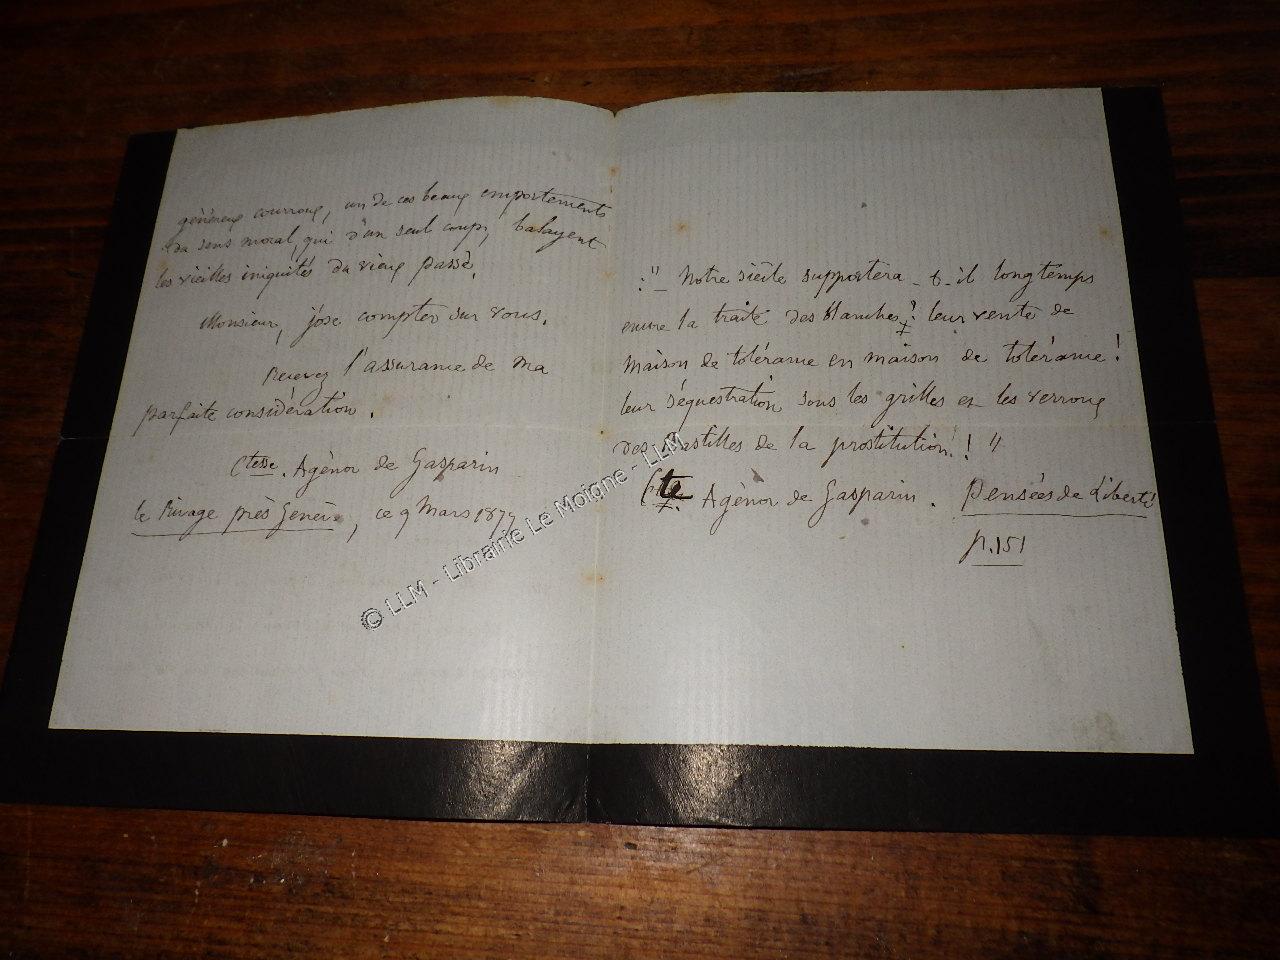 généreux courroux, un de ces beaux emportements
du sens moral, qui d'un seul coup, balayent
les vieilles iniquités du vieux passé.
Monsieur, j'ose compter sur vous.
Recevez l'assurance de ma
parfaite considération.
Ctesse. Agénor de Gasparin
le Rivage près Genève, ce 9 Mars 1879
:"_ Notre siècle supportera-t-il longtemps
encore la traite des blanches? leur vente de
maison de tolérance en maison de tolérance!
leur séquestration sous les grilles et les verroux
des Bastilles de la prostitution!! "
Cte. Agénor de Gasparin. Pensées de Liberté
p. 151
© LLM - Librairie Le Moigne - LLM